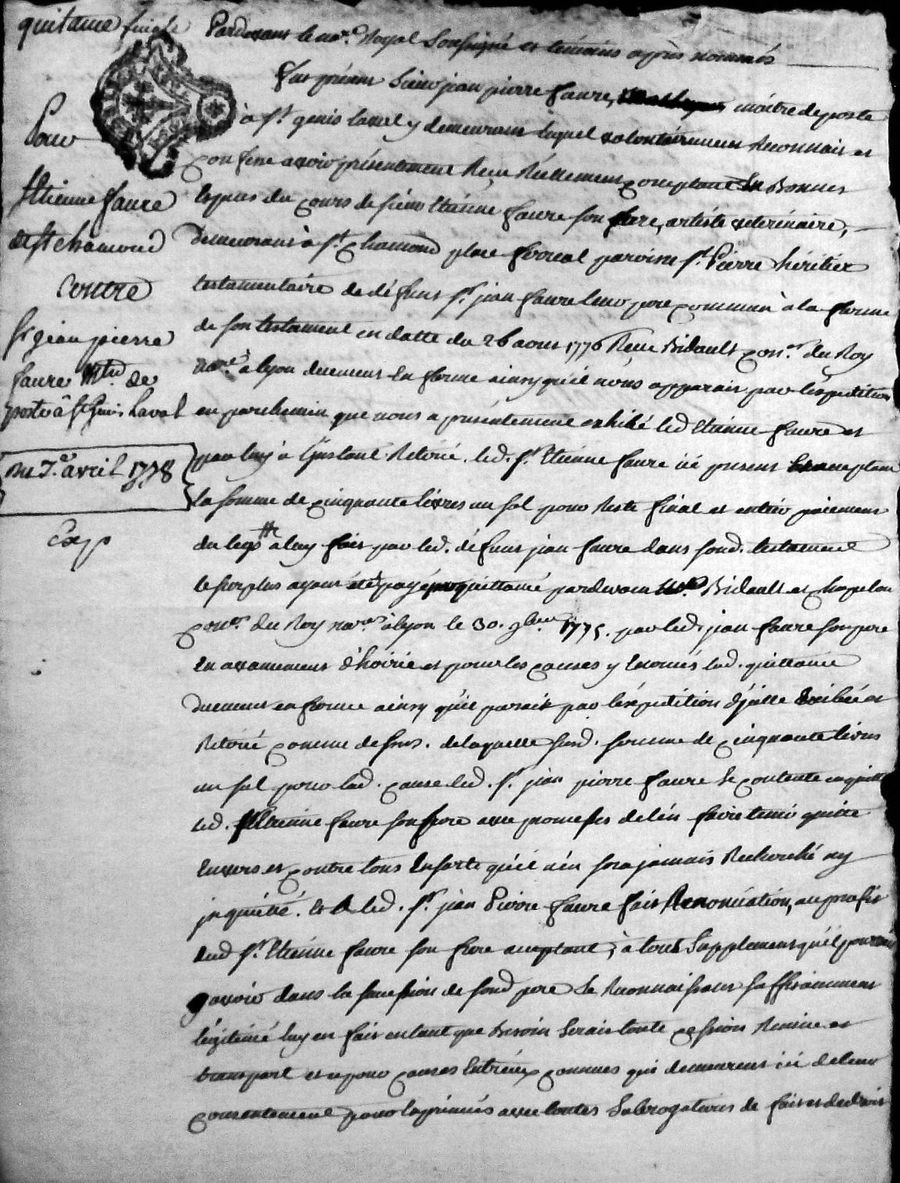 quitance finale
Pour
Etienne faure
de st chamond
Contre
sr jean pierre
faure Mtre de
poste à st Genis Laval
du 7e avril 1778
Exp
Pardevant le nore Royal soussigné et temoins après nommés
fut présent sieur jean pierre faure, maitre de poste
à st genis laval y demeurant lequel volontairement Reconnait et
confesse avoir présentement Reçu Réellement comptant En Bonnes
Espèces du cours de sieur Etienne faure son frere, artiste veterinaire,
demeurant à st Chamond place parroisse st Pierre héritier
testamentaire de défunt sr jean faure leur pere commun à la forme
de son testament en datte du 26 aout 1776 Reçu Bidault conser du Roy
nore à lyon duement En forme ainsy qu'il nous apparait par l'expedition
en parchemin que nous a présentement exhibé led. Etienne faure et
par luy à l'instant Retiré. led. sr Etienne faure icy present acceptant
la somme de cinquante livres un sol pour Reste final et entier paiement
du legs à luy fait par led. défunt jean faure dans sond. testament
le surplus ayant été payé quittancé pardevant Bidault et chapelon
coners du Roy nores à lyon le 30. 9bre 1775. par led. jean faure son pere
En avancement d'hoirie et pour les causes y Enoncés lad. quittance
duement en forme ainsy qu'il parait par l'expedition d'icelle Exibée et
Retirée comme dessus. de laquelle susd. somme de cinquante livres
un sol pour lad. cause led. sr jean pierre faure se contente en quitte
led. Etienne faure son frere avec promesses de l'en faire tenir quitte
Envers et contre tous Ensorte qu'il n'en sera jamais Recherché ny
inquiété. et led. sr jean Pierre faure fait Renonciation, au profit
dud sr Etienne faure son frere acceptant, à tous supplement qu'il pourrait
avoir dans la succession de sond pere se Reconnaissant suffisamment
légitimé luy en fait en tant que Besoin serait toute cession Remise et
transport et ce pour causes Entr'eux connues qui demeurent icy de leur
consentement pour Exprimés avec toutes subrogations de fait et de droit